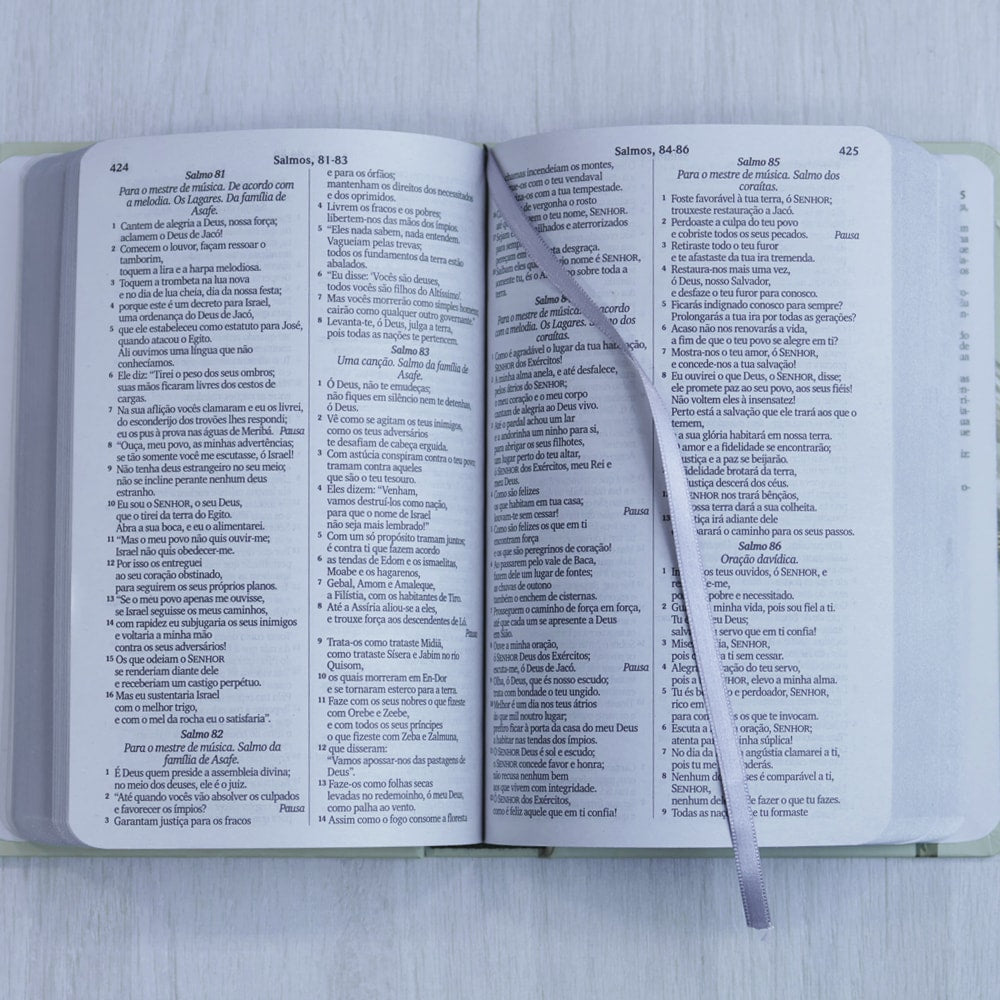 424
Salmos, 81-83
Salmo 81
Para o mestre de música. De acordo com
a melodia. Os Lagares. Da família de
Asafe.
1 Cantem de alegria a Deus, nossa força;
aclamem o Deus de Jacó!
2 Comecem o louvor, façam ressoar o
tamborim,
toquem a lira e a harpa melodiosa.
3 Toquem a trombeta na lua nova
e no dia de lua cheia, dia da nossa festa;
4 porque este é um decreto para Israel,
uma ordenança do Deus de Jacó,
5 que ele estabeleceu como estatuto para José,
quando atacou o Egito.
Ali ouvimos uma língua que não
conhecíamos.
6 Ele diz: “Tirei o peso dos seus ombros;
suas mãos ficaram livres dos cestos de
cargas.
7 Na sua aflição vocês clamaram e eu os livrei,
do esconderijo dos trovões lhes respondi;
eu os pus à prova nas águas de Meribá. Pausa
8 “Ouça, meu povo, as minhas advertências;
se tão somente você me escutasse, ó Israel!
9 Não tenha deus estrangeiro no seu meio;
não se incline perante nenhum deus
estranho.
10 Eu sou o SENHOR, o seu Deus,
que o tirei da terra do Egito.
Abra a sua boca, e eu o alimentarei.
11 “Mas o meu povo não quis ouvir-me;
Israel não quis obedecer-me.
12 Por isso os entreguei
ao seu coração obstinado,
para seguirem os seus próprios planos.
13 “Se o meu povo apenas me ouvisse,
se Israel seguisse os meus caminhos,
14 com rapidez eu subjugaria os seus inimigos
e voltaria a minha mão
contra os seus adversários!
15 Os que odeiam o SENHOR
se renderiam diante dele
e receberiam um castigo perpétuo.
16 Mas eu sustentaria Israel
com o melhor trigo,
e com o mel da rocha eu o satisfaria”.
Salmo 82
Para o mestre de música. Salmo da
família de Asafe.
1 É Deus quem preside a assembleia divina;
no meio dos deuses, ele é o juiz.
2 “Até quando vocês vão absolver os culpados
e favorecer os ímpios? Pausa
3 Garantam justiça para os fracos
e para os órfãos;
mantenham os direitos dos necessitados
e dos oprimidos.
4 Livrem os fracos e os pobres;
libertem-nos das mãos dos ímpios.
5 “Eles nada sabem, nada entendem.
Vagueiam pelas trevas;
todos os fundamentos da terra estão
abalados.
6 “Eu disse: ‘Vocês são deuses,
todos vocês são filhos do Altíssimo’.
7 Mas vocês morrerão como simples homens;
cairão como qualquer outro governante.”
8 Levanta-te, ó Deus, julga a terra,
pois todas as nações te pertencem.
Salmo 83
Uma canção. Salmo da família de
Asafe.
1 Ó Deus, não te emudeças;
não fiques em silêncio nem te detenhas,
ó Deus.
2 Vê como se agitam os teus inimigos,
como os teus adversários
te desafiam de cabeça erguida.
3 Com astúcia conspiram contra o teu povo;
tramam contra aqueles
que são o teu tesouro.
4 Eles dizem: “Venham,
vamos destruí-los como nação,
para que o nome de Israel
não seja mais lembrado!”
5 Com um só propósito tramam juntos;
é contra ti que fazem acordo
6 as tendas de Edom e os ismaelitas,
Moabe e os hagarenos,
7 Gebal, Amom e Amaleque,
a Filístia, com os habitantes de Tiro.
8 Até a Assíria aliou-se a eles,
e trouxe força aos descendentes de Ló.
Pausa
9 Trata-os como trataste Midiã,
como trataste Sísera e Jabim no rio
Quisom,
10 os quais morreram em En-Dor
e se tornaram esterco para a terra.
11 Faze com os seus nobres o que fizeste
com Orebe e Zeebe,
e com todos os seus príncipes
o que fizeste com Zeba e Zalmuna,
12 que disseram:
“Vamos apossar-nos das pastagens de
Deus”.
13 Faze-os como folhas secas
levadas no redemoinho, ó meu Deus,
como palha ao vento.
14 Assim como o fogo consome a floresta
Salmos, 84-86
425
incendeiam os montes,
com o teu vendaval
com a tua tempestade.
de vergonha o rosto
o teu nome, SENHOR.
e aterrorizados
para
desgraça.
nome é SENHOR,
somente tu, és o sobre toda a
terra.
Salmo
Para o mestre de música. acordo
com a melodia. Os Lagares. dos
coraítas.
Como é agradável o lugar da tua
SENHOR dos Exércitos!
A minha alma anela, e até desfalece,
pelos átrios do SENHOR;
o meu coração e o meu corpo
cantam de alegria ao Deus vivo.
Até o pardal achou um lar
e a andorinha um ninho para si,
para abrigar os seus filhotes,
um lugar perto do teu altar,
ó SENHOR dos Exércitos, meu Rei e
meu Deus.
Como são felizes
os que habitam em tua casa;
louvam-te sem cessar! Pausa
Como são felizes os que em ti
encontram força
e os que são peregrinos de coração!
Ao passarem pelo vale de Baca,
fazem dele um lugar de fontes;
as chuvas de outono
também o enchem de cisternas.
Prosseguem o caminho de força em força,
até que cada um se apresente a Deus
em Sião.
Ouve a minha oração,
ó SENHOR Deus dos Exércitos;
escuta-me, ó Deus de Jacó. Pausa
Olha, ó Deus, que és nosso escudo;
trata com bondade o teu ungido.
Melhor é um dia nos teus átrios
do que mil noutro lugar;
prefiro ficar à porta da casa do meu Deus
a habitar nas tendas dos ímpios.
O SENHOR Deus é sol e escudo;
o SENHOR concede favor e honra;
não recusa nenhum bem
aos que vivem com integridade.
Ó SENHOR dos Exércitos,
como é feliz aquele que em ti confia!
Salmo 85
Para o mestre de música. Salmo dos
coraítas.
1 Foste favorável à tua terra, ó SENHOR;
trouxeste restauração a Jacó.
2 Perdoaste a culpa do teu povo
e cobriste todos os seus pecados. Pausa
3 Retiraste todo o teu furor
e te afastaste da tua ira tremenda.
4 Restaura-nos mais uma vez,
ó Deus, nosso Salvador,
e desfaze o teu furor para conosco.
5 Ficarás indignado conosco para sempre?
Prolongarás a tua ira por todas as gerações?
6 Acaso não nos renovarás a vida,
a fim de que o teu povo se alegre em ti?
7 Mostra-nos o teu amor, ó SENHOR,
e concede-nos a tua salvação!
8 Eu ouvirei o que Deus, o SENHOR, disse;
ele promete paz ao seu povo, aos seus fiéis!
Não voltem eles à insensatez!
Perto está a salvação que ele trará aos que o
temem,
a sua glória habitará em nossa terra.
amor e a fidelidade se encontrarão;
a paz se beijarão.
fidelidade brotará da terra,
descerá dos céus.
nos trará bênçãos,
terra dará a sua colheita.
irá adiante dele
o caminho para os seus passos.
Salmo 86
Oração davídica.
1 os teus ouvidos, ó SENHOR, e
pobre e necessitado.
2 minha vida, pois sou fiel a ti.
Tu meu Deus;
servo que em ti confia!
3 SENHOR,
pois a ti sem cessar.
4 do teu servo,
pois a elevo a minha alma.
5 Tu és e perdoador, SENHOR,
rico em
para com os que te invocam.
6 Escuta a oração, SENHOR;
atenta para súplica!
7 No dia da angústia clamarei a ti,
pois tu me
8 Nenhum é comparável a ti,
SENHOR,
nenhum de fazer o que tu fazes.
9 Todas as tu formaste